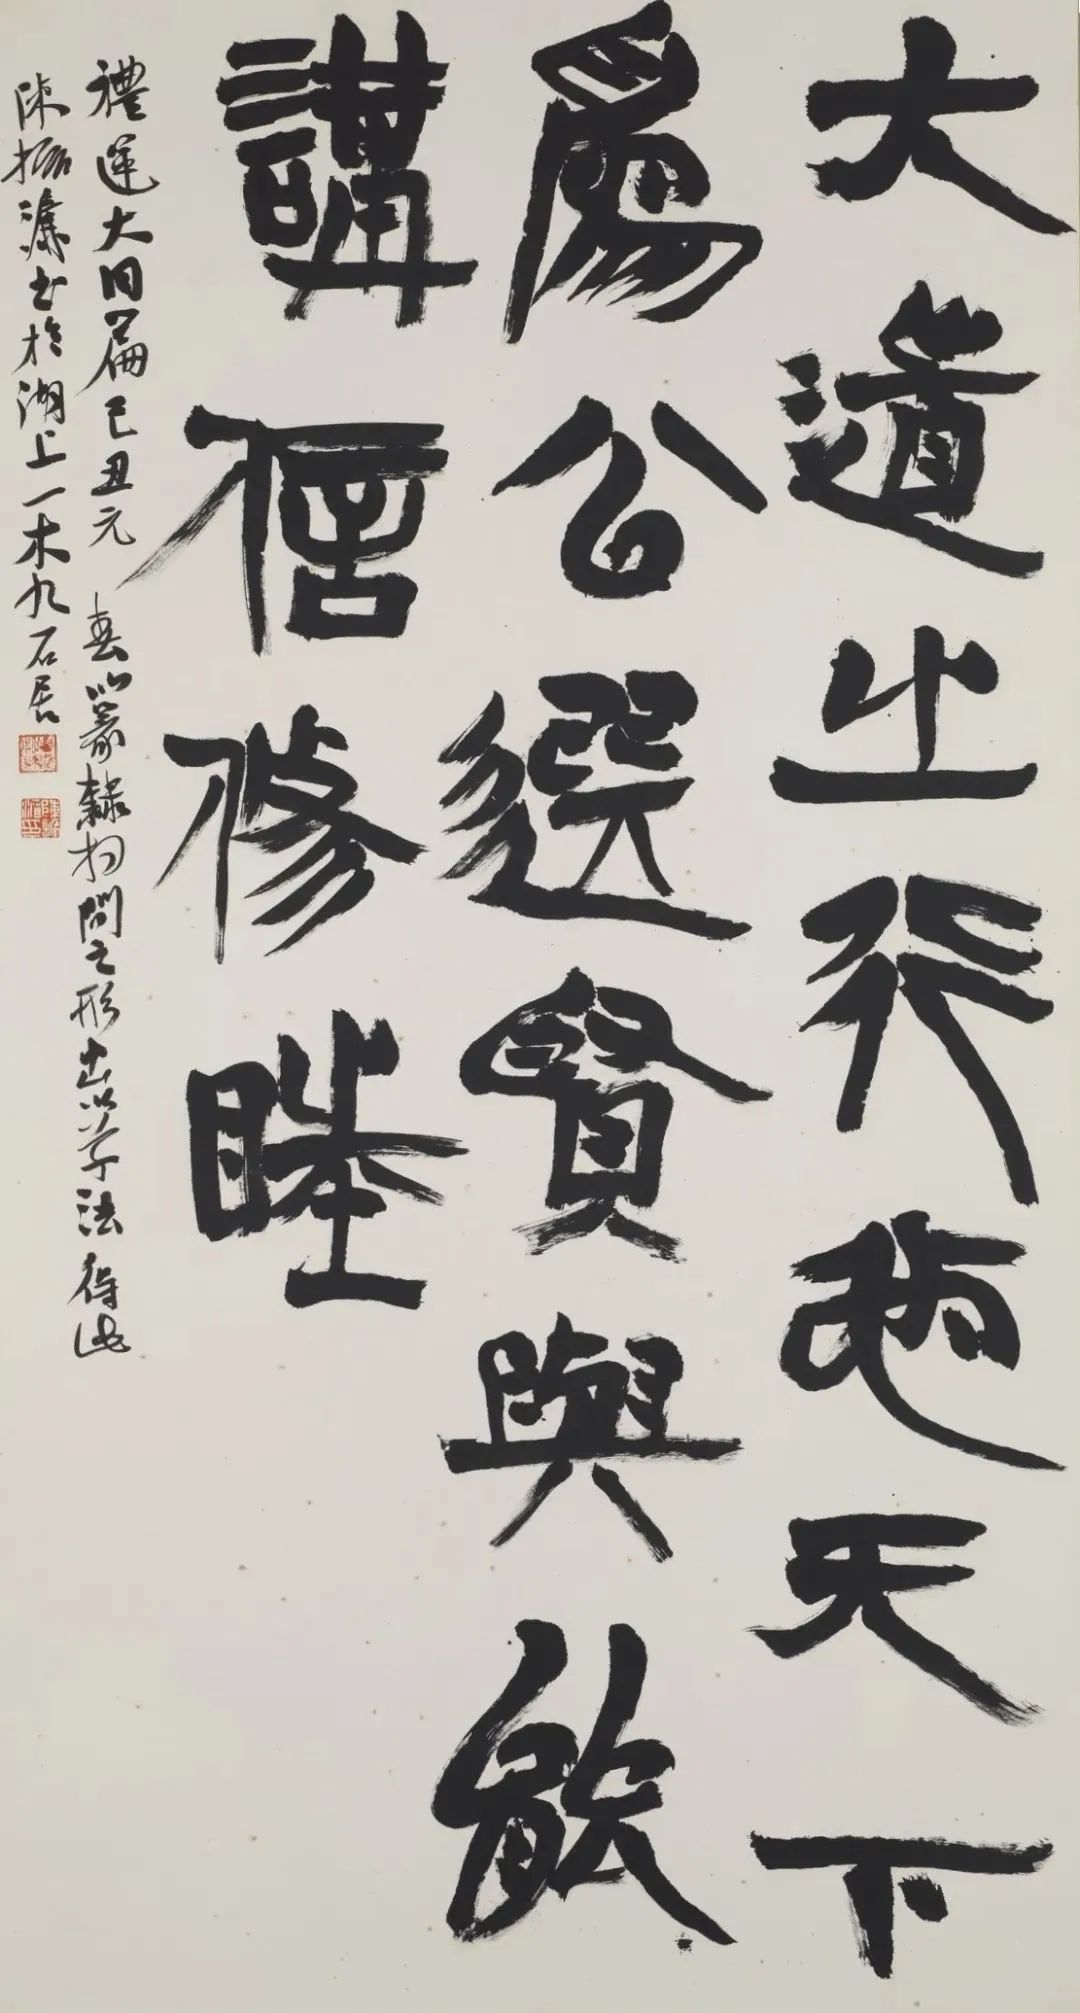 大道之行也天下
爲公選賢與能
講信修睦
禮運大同篇己丑元春以篆隸相間之形出以草法得此
陳振濂書於湖上一木九石居